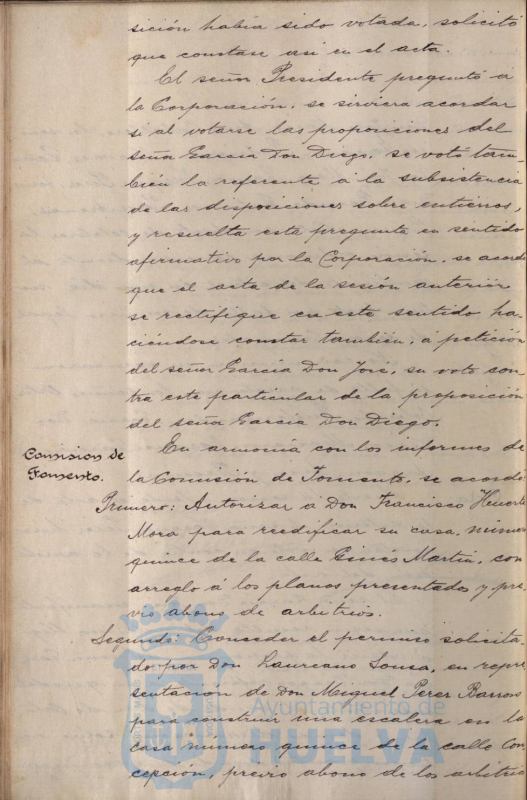 sición había sido votada, solicitó
que constase así en el acta.
El señor Presidente preguntó á
la Corporación, se sirviera acordar
si al votarse las proposiciones del
seña García Don Diego, se votó tam-
bién la referente á la subsistencia
de las disposiciones sobre entierros,
y resuelta esta pregunta en sentido
afirmativo por la Corporación, se acordó
que el acta de la sesión anterior
se rectifique en este sentido ha-
ciéndose constar también, á petición
del señor García Don José, su voto con-
tra este particular de la proposición
del seña García Don Diego.
Comision de
Fomento.
En armonía con los informes de
la Comisión de Fomento, se acordó:
Primero: Autorizar á Don Francisco
Mora para reedificar su casa, número
quince de la calle Ginés Martín, con
arreglo á los planos presentados y pre-
vio abono de arbitrios.
Segundo: Conceder el permiso solicita-
do por Don Laureano Sousa, en repre-
sentación de Don Miguel Perez Barroso
para construir una escalera en la
casa número quince de la calle Con-
cepción, previo abono de los arbitrios
Ayuntamiento de
HUELVA